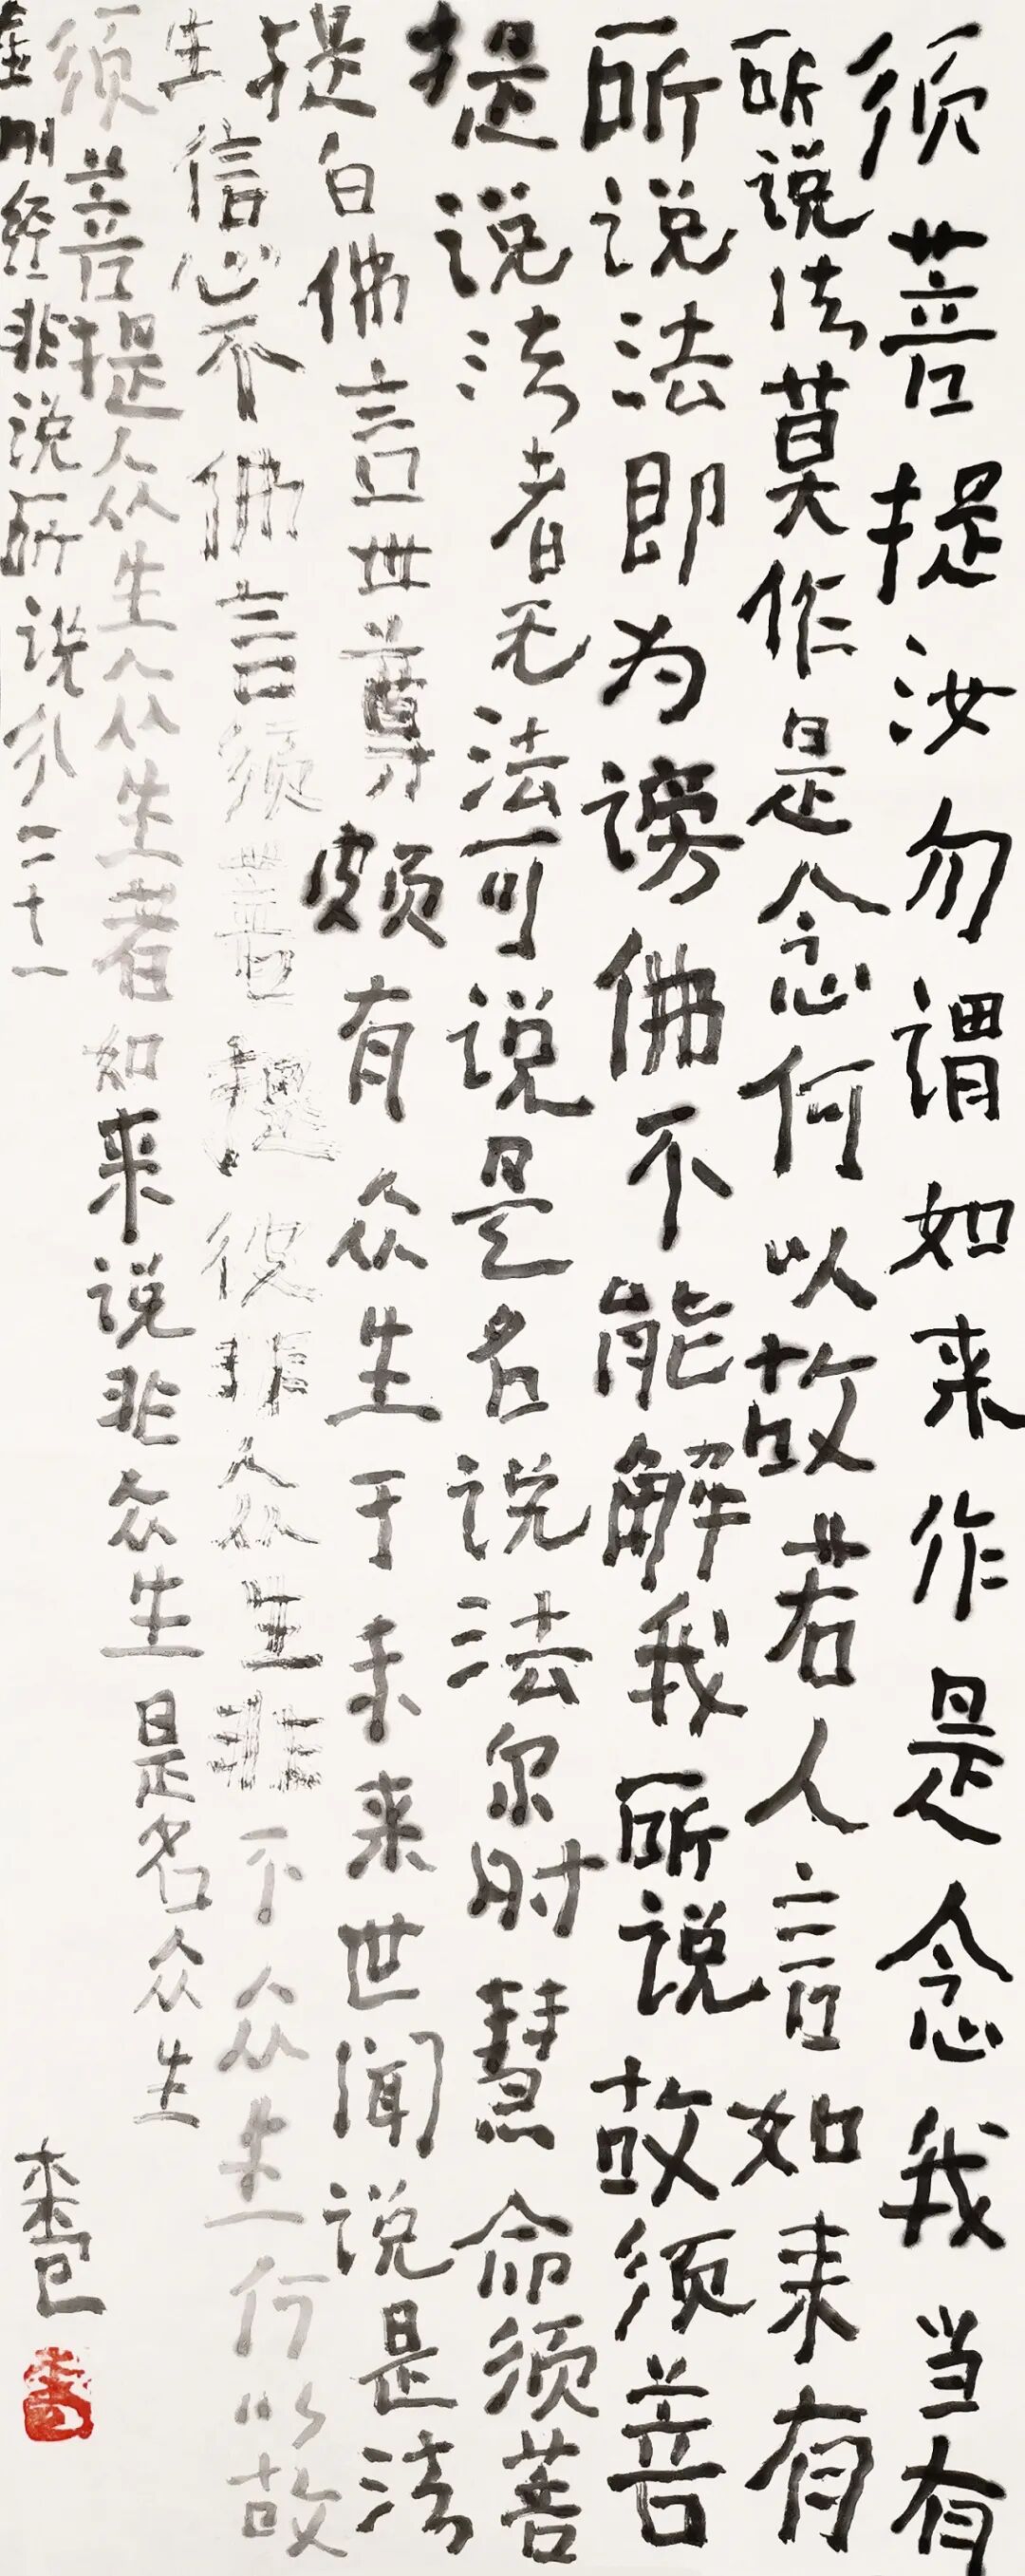 须菩提汝勿谓如来作是念我当有
所说法莫作是念何以故若人言如来有
所说法即为谤佛不能解我所说故须菩
提说法者无法可说是名说法尔时慧命须菩
提白佛言世尊颇有众生于未来世闻说是法
生信心不佛言须菩提彼非众生非不众生何以故
须菩提众生众生者如来说非众生是名众生
金刚经非说所说分二十一